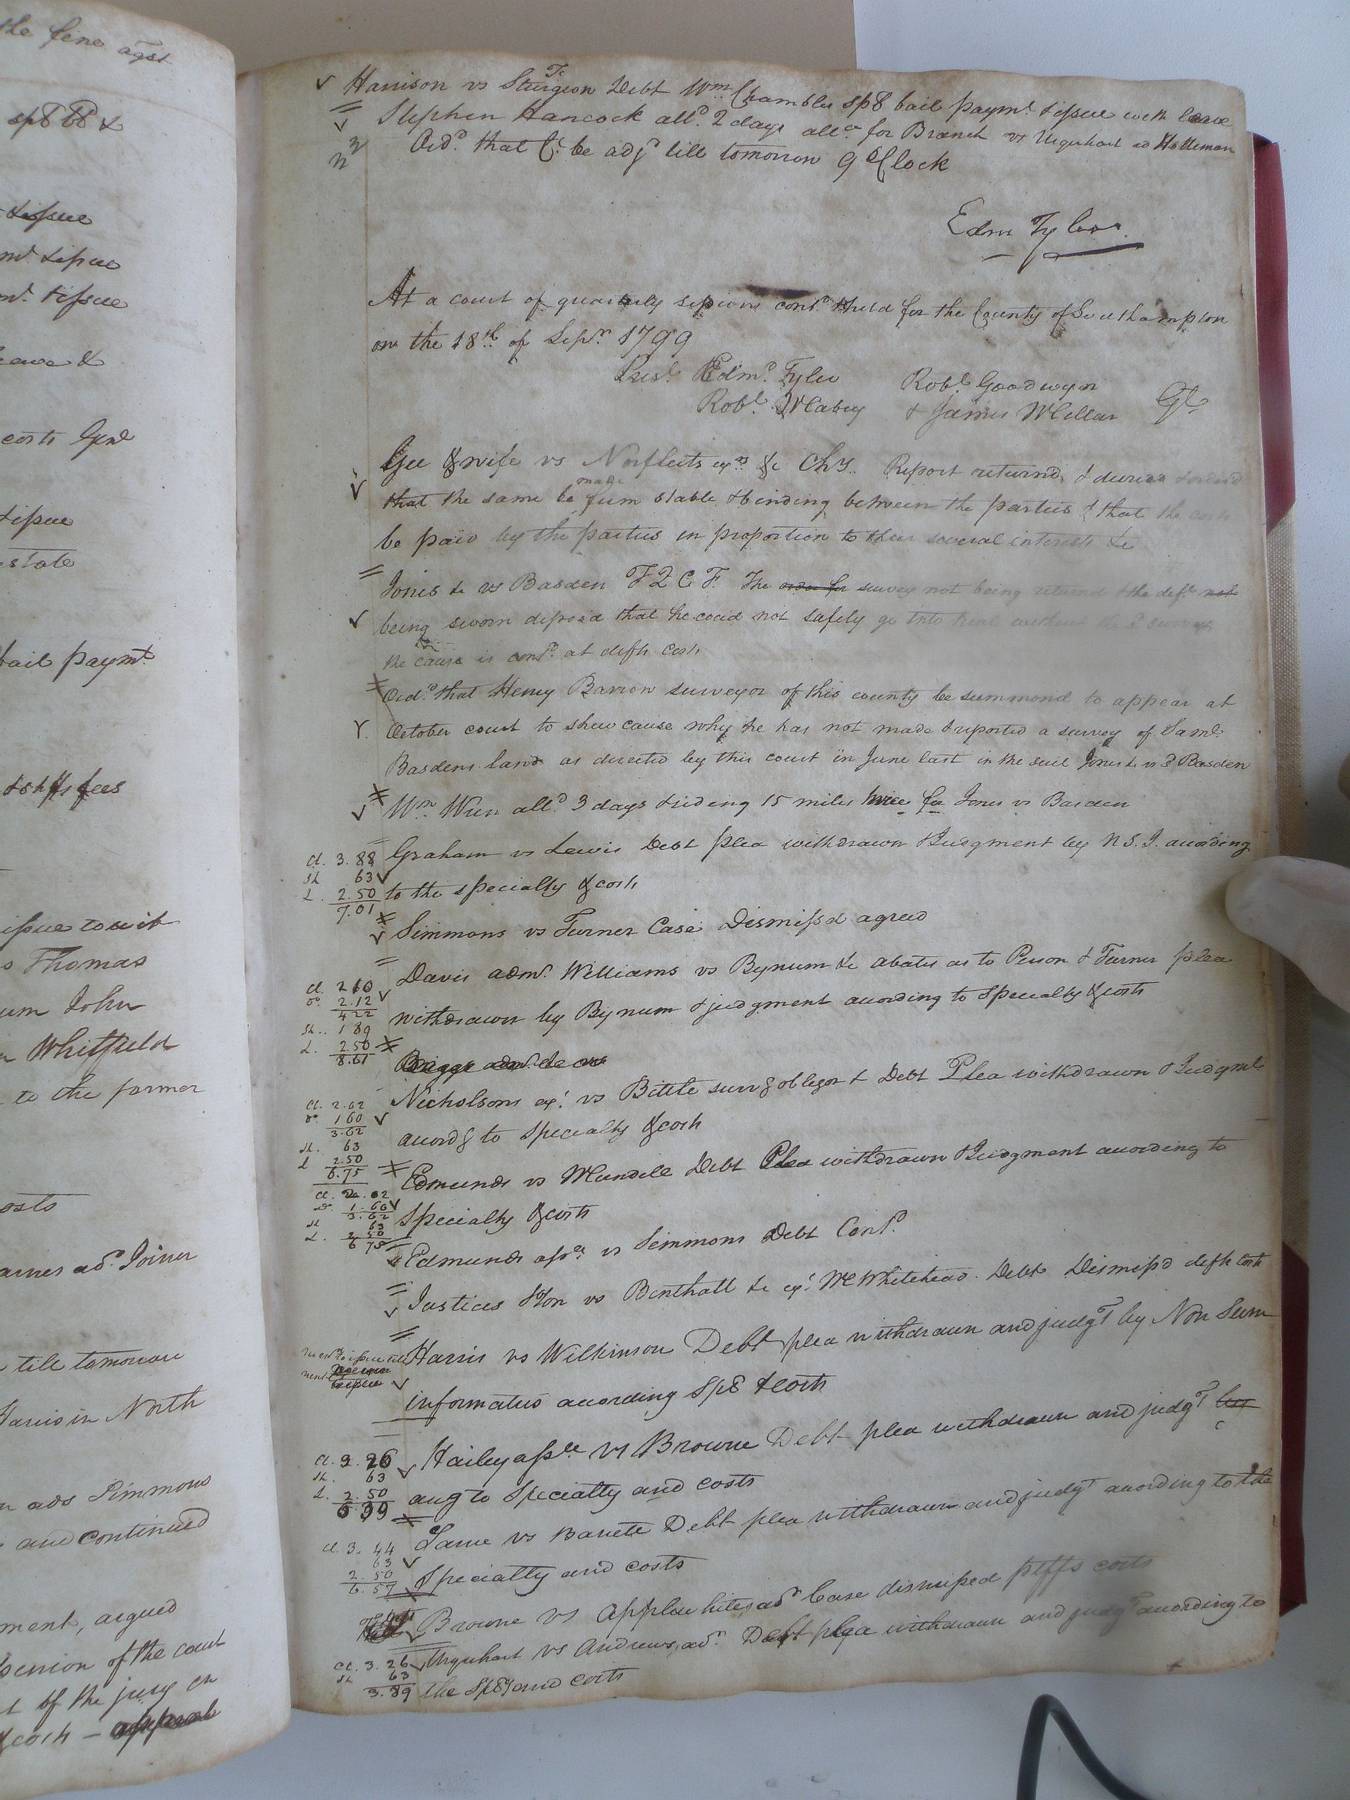 the fine agst
sp8 BB &
& issue
& issue
& issue
costs Genl
& issue
estate
bail paymt
fees
issue to wit
Thomas
John
Whitfield
to the former
costs
ads. Joiner
till tomorrow
North
ads Simmons
and continued
argued
opinion of the court
of the jury on
& costs —
Harrison vs Sturgeon Debt Wm. Chambliss sp8 bail paymt. & issue with leave
Stephen Hancock alld. 2 days attce for Branch vs Urquhart ad Holleman
Ord. that Ct. be adjd till tomorrow 9 oClock
Edm Tyler
At a court of quarterly sessions contd. & held for the County of Southampton
on the 18th. of Sepr. 1799
Prest. Edmd. Tyler Robt. Goodwyn
Robt. Mabry & James Millar Gt.
Gee & wife vs Norfleets exrs &c Chy. Report returned, & decree
that the same be made firm stable & binding between the parties & that the costs
be paid by the parties in proportion to their several interests &c
Jones &c vs Basden F Q C F. The order for survey not being returned & the deft. not
being sworn deposed that he coud not safely go into trial without the survey
the cause is contd. at defts costs
Ord. that Henry Barron surveyor of this county be summond to appear at
October court to shew cause why he has not made & reported a survey of Saml.
Basdens land as directed by this court in June last in the suit Jones &c vs Basden
Wm. Wren alld. 3 days & riding 15 miles twice for Jones vs Basden
Cl. 3.88 Graham vs Lewis Debt plea withdrawn & Judgment by N.S.I. acording
Sh 63
L. 2.50 to the specialty & costs
7.01
Simmons vs Turner Case Dismissd agreed
Davis admr. Williams vs Bynum &c abates as to Person & Turner plea
Cl. 210
do. 2.12
4 22 withdrawn by Bynum & judgment acording to specialty & costs
Sh.. 1 89
L. 2 50
8.61 Briggs admr. &c
Nicholsons exr. vs Bittle survg obligor & Debt Plea withdrawn & Judgmt
Cl. 2.02
do. 1 60
3.62 acordg to specialty & costs
Sh. 63
L 2.50
6.75 Edmunds vs Mundell Debt Plea withdrawn & Judgment acording to
Cl. 2. 02
do. 1.60
3.62 specialty & costs
Sh 63
L. 2 50
6 75 Edmunds asse. vs Simmons Debt Contd.
Justices S'Ton vs Binthall &c exr. McWhitehead. Debt Dismissd defts costs
Harris vs Wilkinson Debt plea withdrawn and judgt by Non Sum
informatus acording Sp8 & costs
Cl. 3. 26 Hailey asse vs Browne Debt plea withdrawn and judgt
Sh. 63
L. 2. 50 acg to Specialty and costs
6 39
Cl 3. 44 Same vs Barrett Debt plea withdrawn and judgt acording to the
63
2. 50 Specialty and costs
6. 57
Browne vs Applewhites adr. Case dismissed pltffs costs
Cl. 3. 26 Urquhart vs Andrews, adr. Debt plea withdrawn and judgt acording to
Sh 63
3. 89 the Sp8y and costs